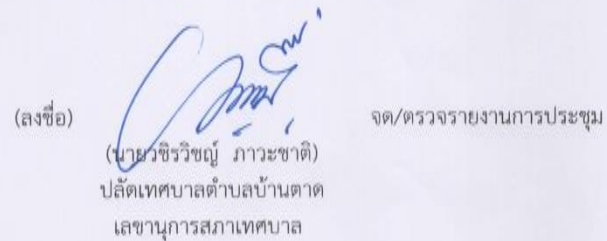 (ลงชื่อ) จด/ตรวจรายงานการประชุม
(นายวชิรวิชญ์ ภาวะชาติ)
ปลัดเทศบาลตำบลบ้านตาด
เลขานุการสภาเทศบาล